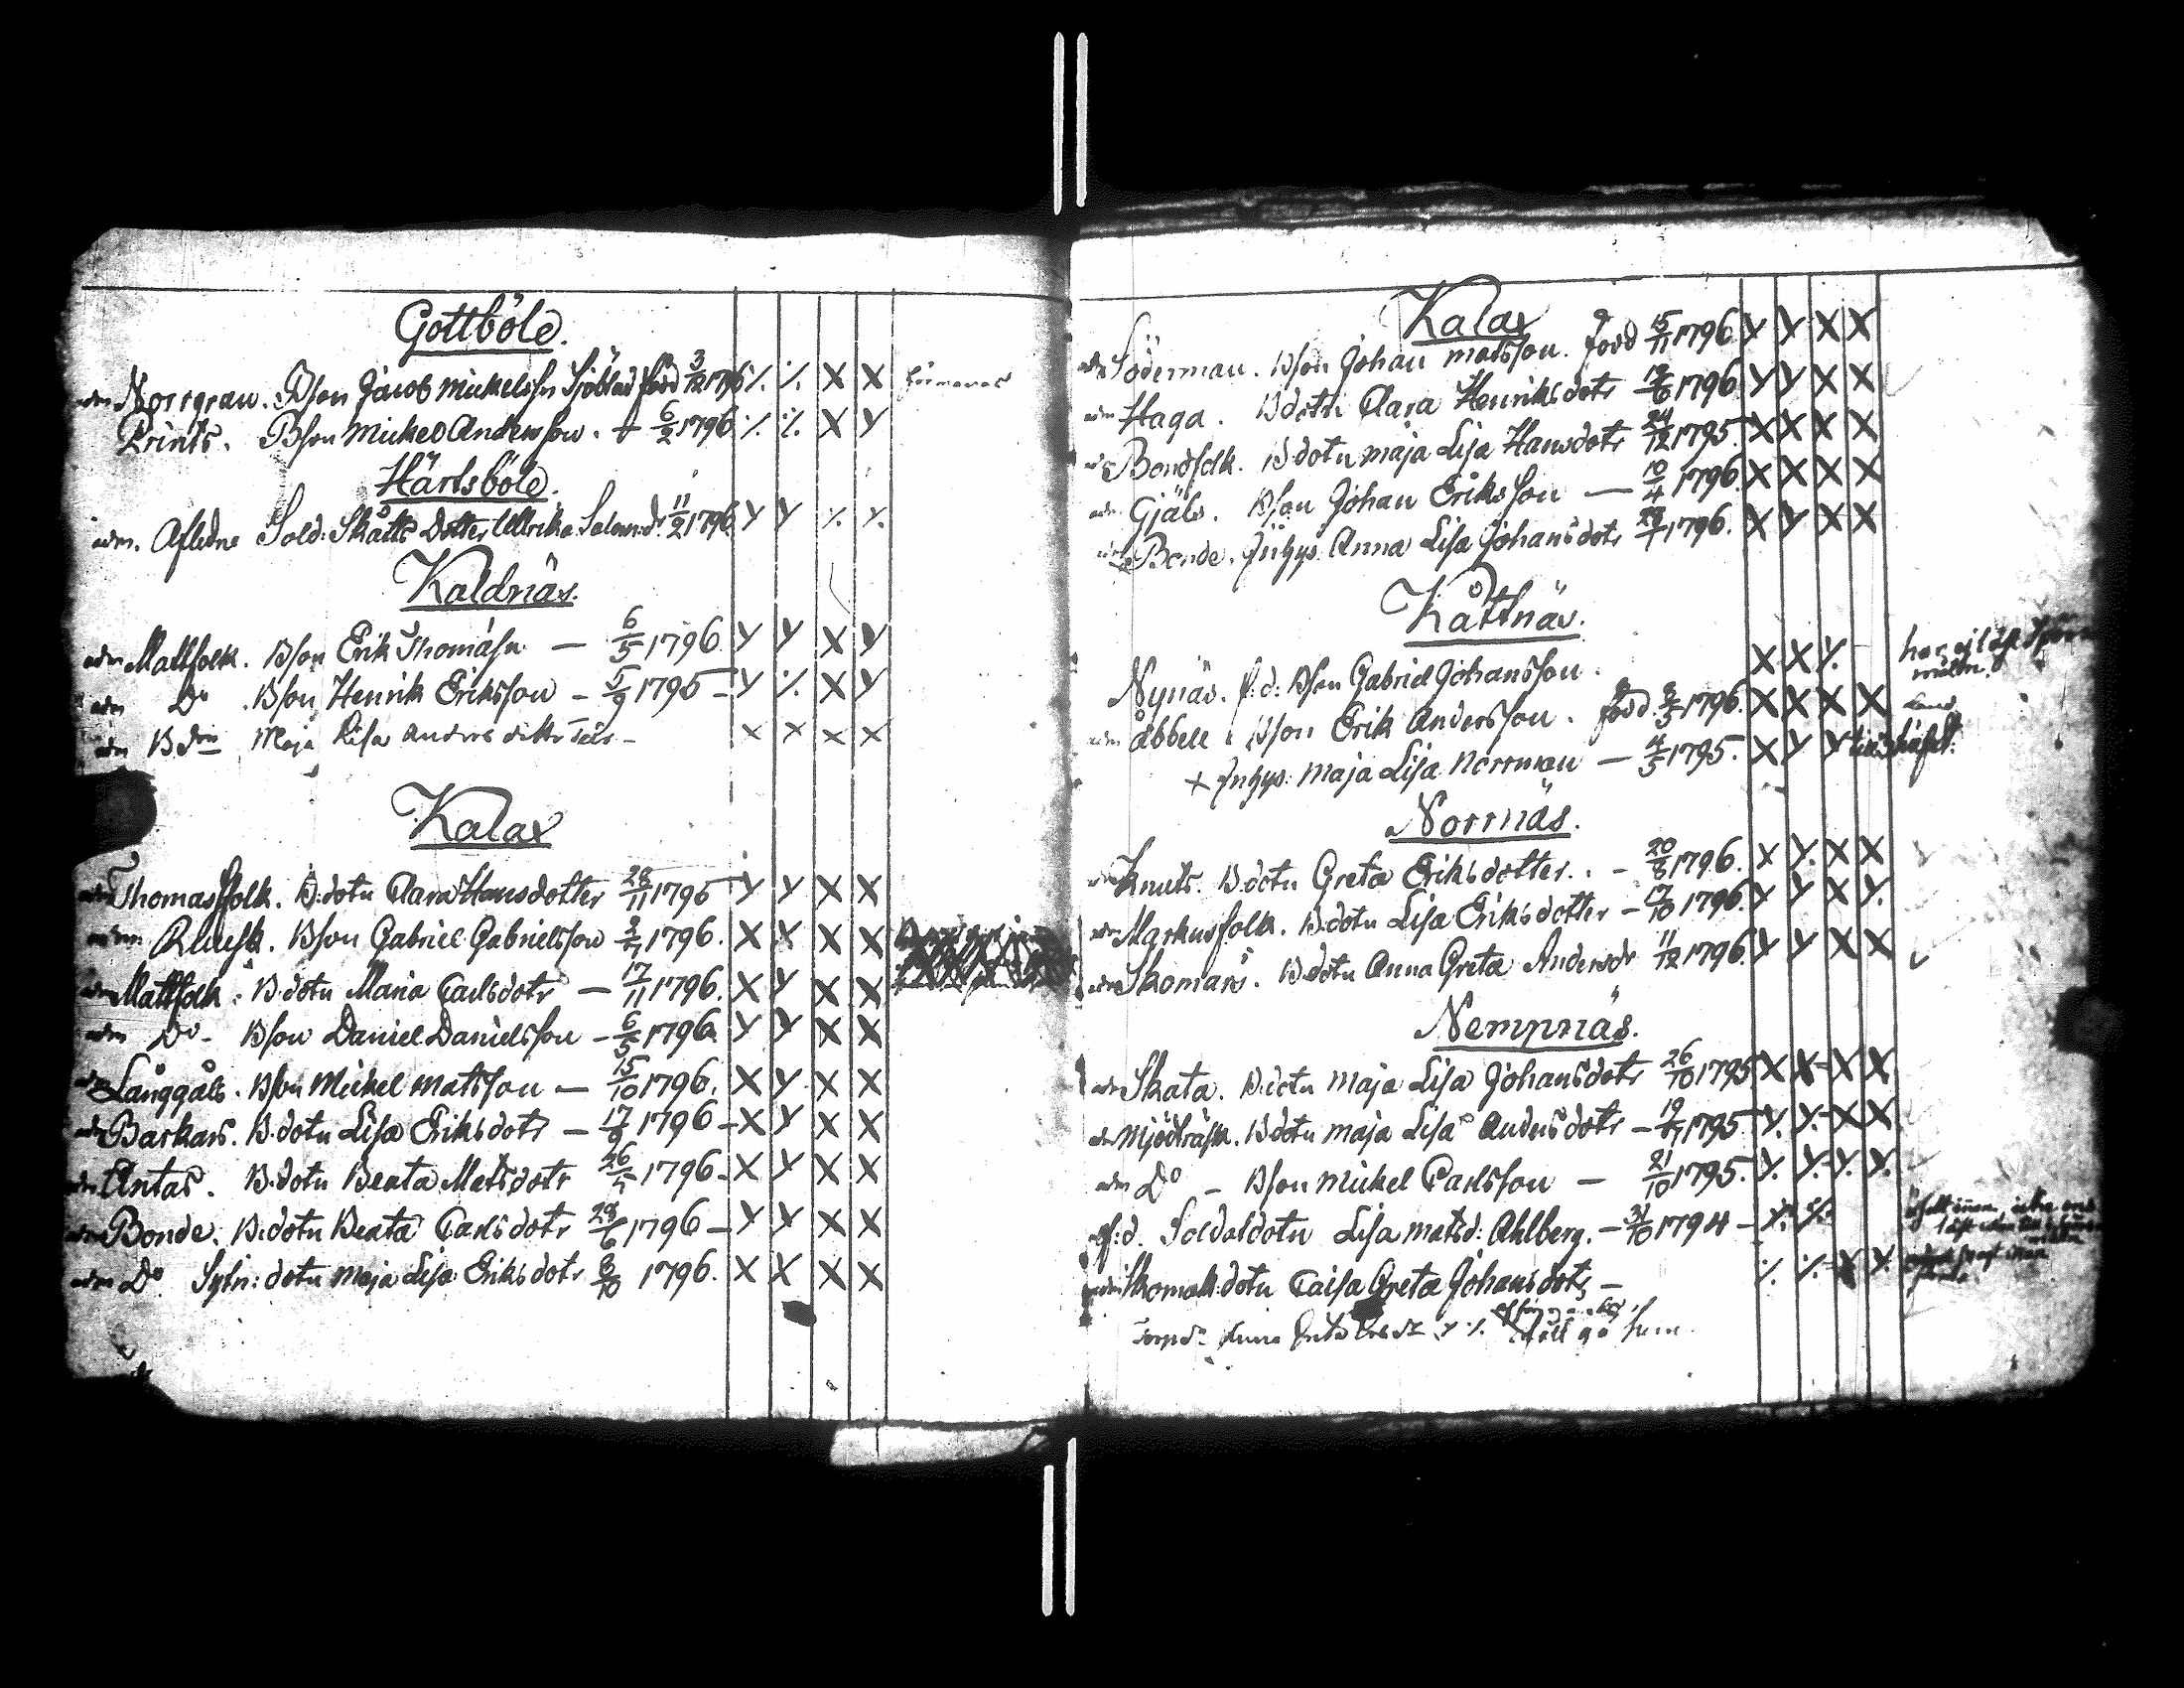 Gottböle.
adm Norrgran. Bson Jacob Mickelsson Sjöblad född 3/12 1796 ٪ ٪ X X
Prints. Bson Mickel Andersson. 6/2 1796 ٪ ٪ X Y
Härtsböle.
adm. Afledne Sold: Skatts Dotter Ullrika Salom:dr 11/2 1796 Y Y ٪ ٪
Kaldnäs.
adm Mattfolk. Bson Erik Thomasn — 6/5 1796 Y Y X Y
adm Do Bson Henrik Eriksson – 5/9 1795 – Y ٪ X Y
adm B. Maja Lisa Anders dotter – X X X X
Kalax
adm Thomasfolk. B:dotn Clara Hansdotter 28/11 1795 Y Y X X
adm Bson Gabriel Gabrielsson 1796. X X X X
adm Mattfolk. B:dotn Maria Carlsdotr — 17/11 1796. X Y X X
adm Do - Bson Daniel Danielsson – 6/5 1796. Y Y X X
adm Långgåls. Bson Mickel Matsson — 15/10 1796. X Y X X
adm Barkars. B:dotn Lisa Eriksdotr — 17/9 1796 – X Y X X
adm Antas. B:dotn Beata Matsdotr 26/ 1796 – X Y X X
adm Bonde. B:dotn Beata Carlsdotr 28/6 1796 – Y Y X X
adm Do Sytn: dotn Maja Lisa Eriksdotr 8/10 1796. X X X X
Kalax
adm Söderman. Bson Johan Matsson. född 15/11 1796 Y Y X X
adm Haga. Bdotn Clara Henriksdotr 1796 Y Y X X
adm Bondfolk. B:dotn Maja Lisa Hansdotr 24/12 1795. X X X X
adm Gjäls. Bson Johan Eriksson — 10/4 1796. X X X X
Bonde. Inhys. Anna Lisa Johansdotr 1796. X Y X X
Kåttnäs.
Nynäs. f:d: Bson Gabriel Johansson. X X ٪ har ej
adm Åbbell Bson Erik Andersson. född 1796. X X X X
X Inhys: Maja Lisa Norrman — 4/5 1795. X Y Y
Norrnäs.
adm Knuts. B:dotn Greta Eriksdotter. – 20/8 1796. X Y X X
adm Markusfolk. B:dotn Lisa Eriksdotter – 17/10 1796. Y Y X Y.
adm Skomars. B:dotn Anna Greta Andersdr 11/12 1796. Y Y X X
Nempnäs.
adm Skata. B:dotn Maja Lisa Johansdotr 26/10 1795 X X X X
adm Mjödträsk. B:dotn Maja Lisa Andersdotr – 1795 Y. Y. X X
adm Do – Bson Mickel Carlsson — 21/10 1795. Y. Y. Y. Y.
f:d. Soldatdotn Lisa Matsd: Ahlberg. – 31/10 1794 –
adm Skomak:dotn Caisa Greta Johansdotr – ٪ ٪ X Y
Anna Greta